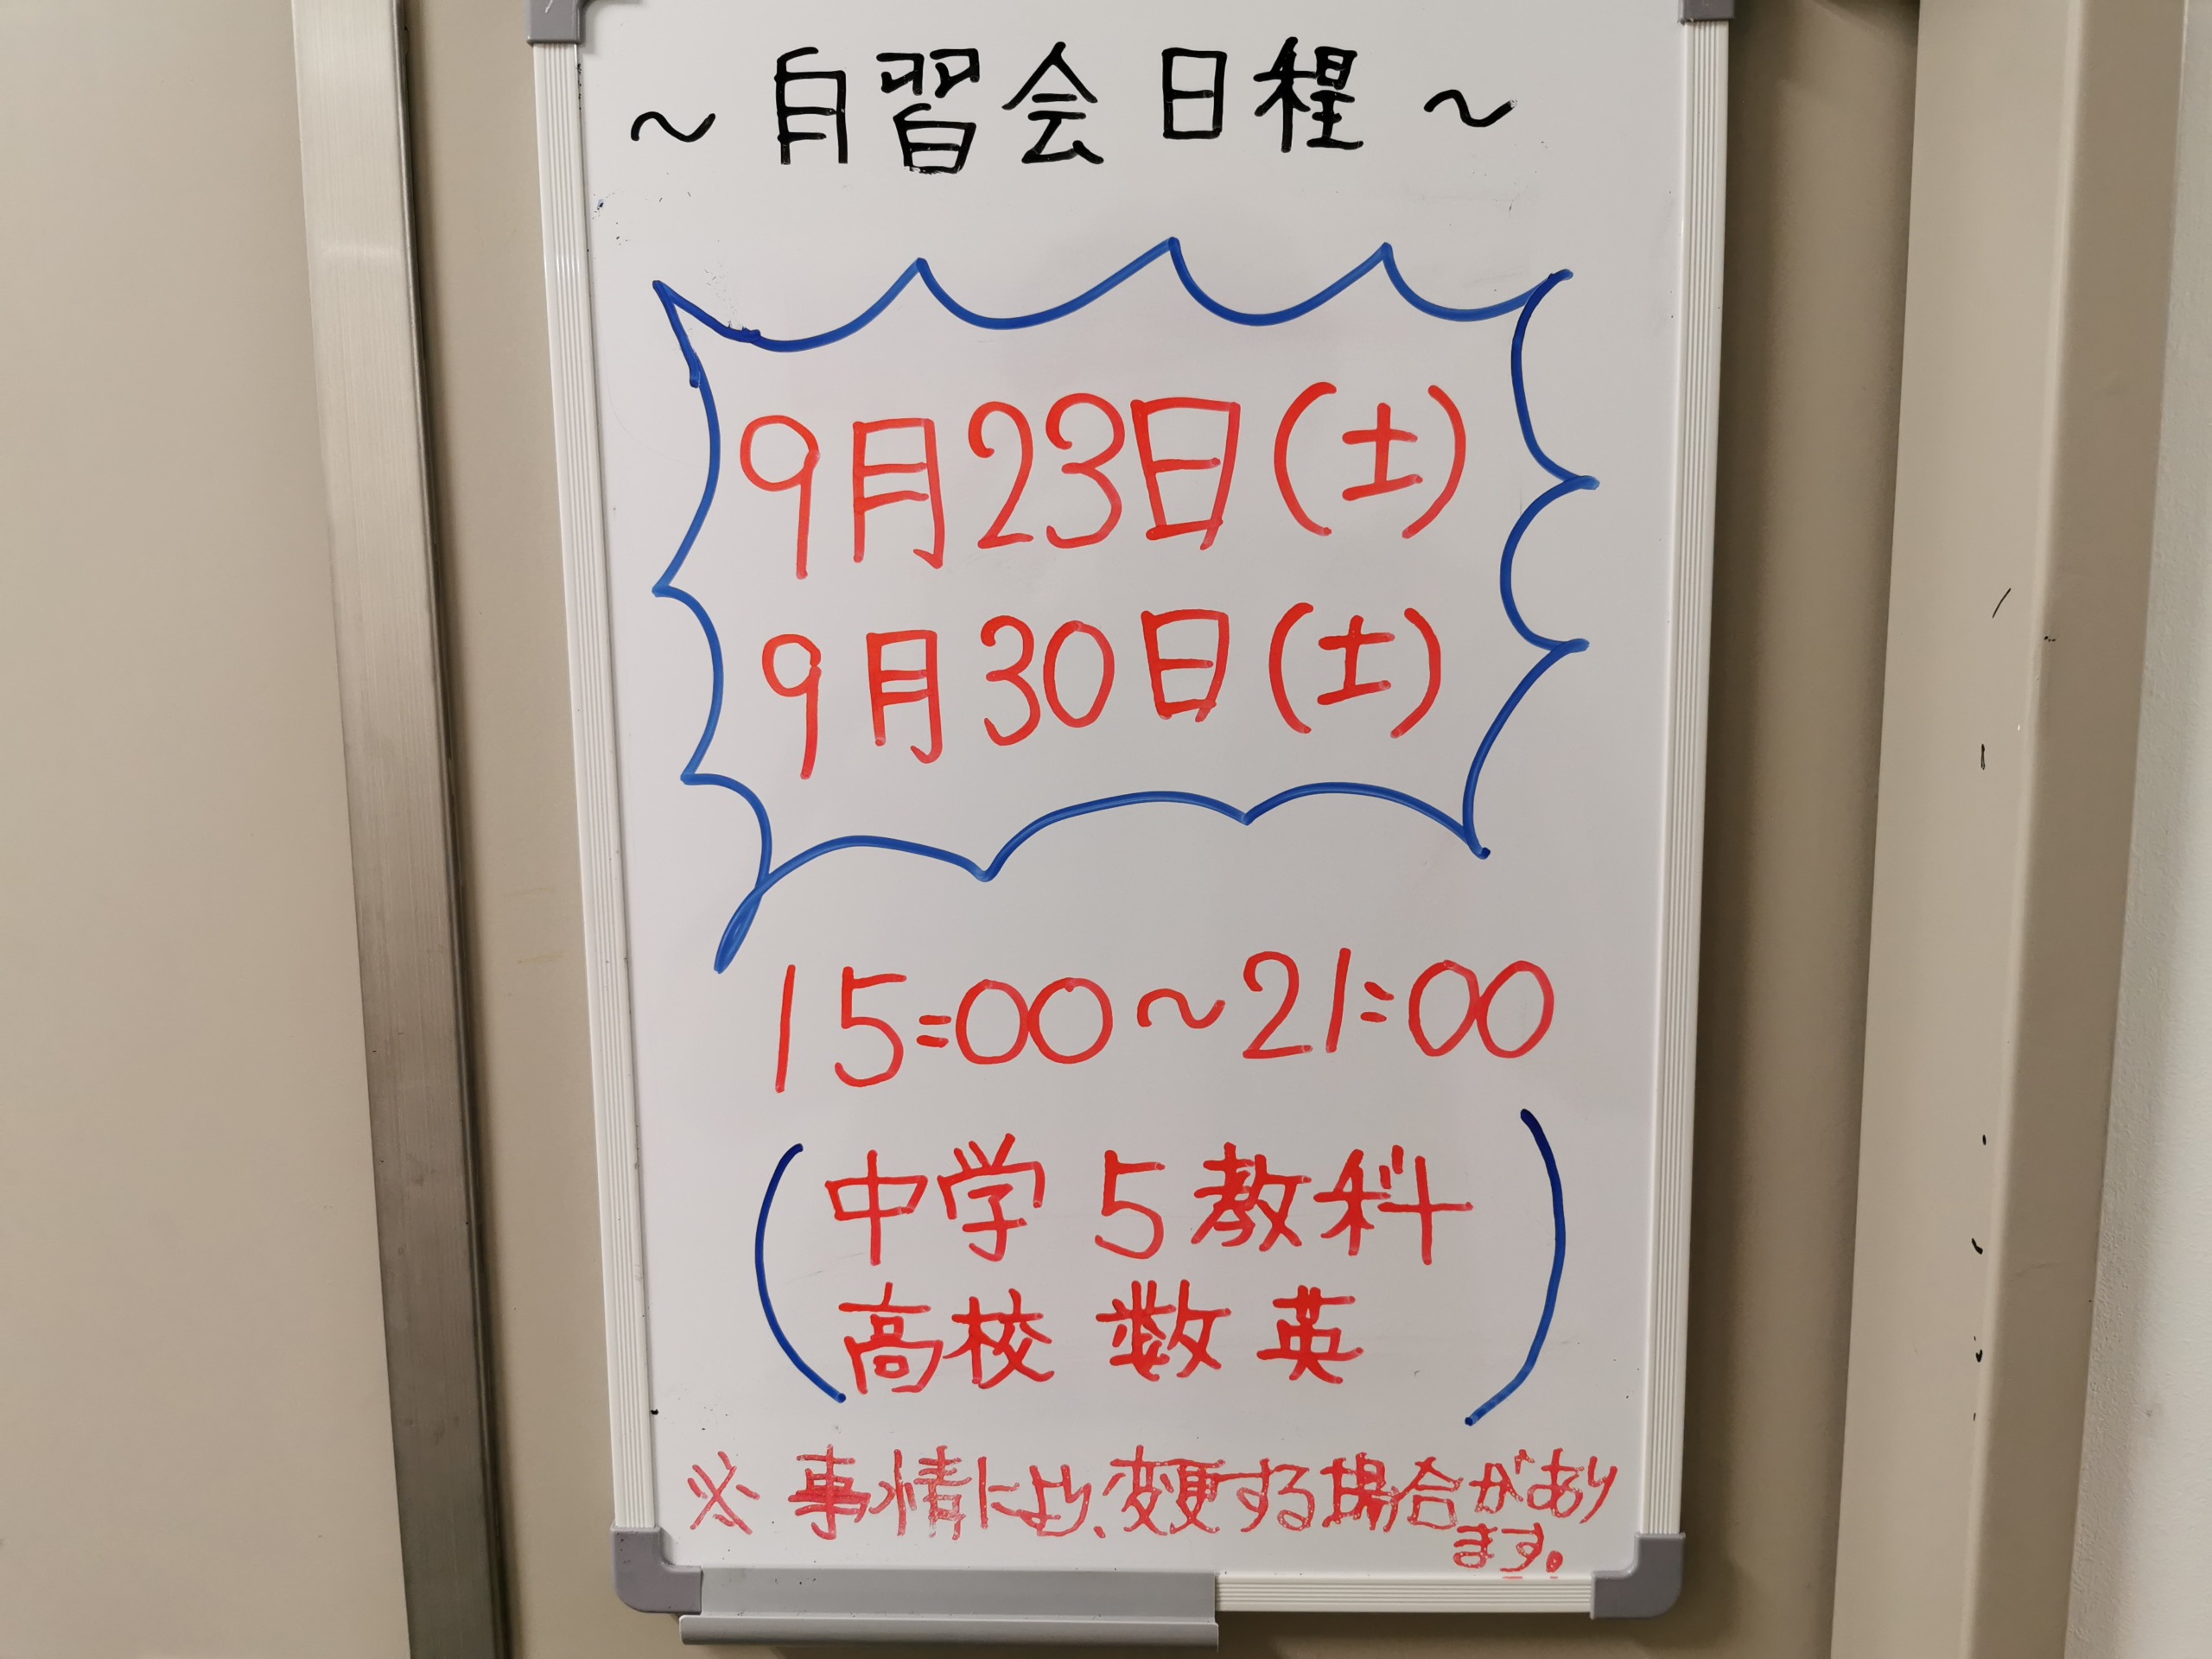 ～自習会日程～
9月23日(土)
9月30日(土)
15:00～21:00
中学 5教科
高校 数英
※ 事情により、変更する場合があり
ます。